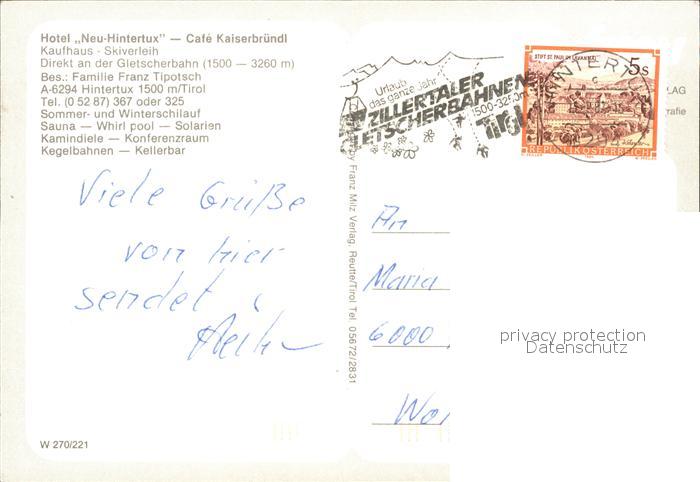 Hotel „Neu-Hintertux" — Café Kaiserbründl
Kaufhaus - Skiverleih
Direkt an der Gletscherbahn (1500 — 3260 m)
Bes.: Familie Franz Tipotsch
A-6294 Hintertux 1500 m/Tirol
Tel. (0 52 87) 367 oder 325
Sommer- und Winterschilauf
Sauna — Whirl pool — Solarien
Kamindiele — Konferenzraum
Kegelbahnen — Kellerbar
Viele Grüße
von hier
sendet
W 270/221
by Franz Milz Verlag, Reutte/Tirol Tel. 05672/2831
Urlaub
das ganze Jahr
ZILLERTALER
GLETSCHERBAHNEN
1500-3250m
Tirol
HINTERTUX
STIFT ST. PAUL IM LAVANTTAL
5s
REPUBLIK ÖSTERREICH
LAG
grafie
An
Maria
6000
privacy protection
Datenschutz